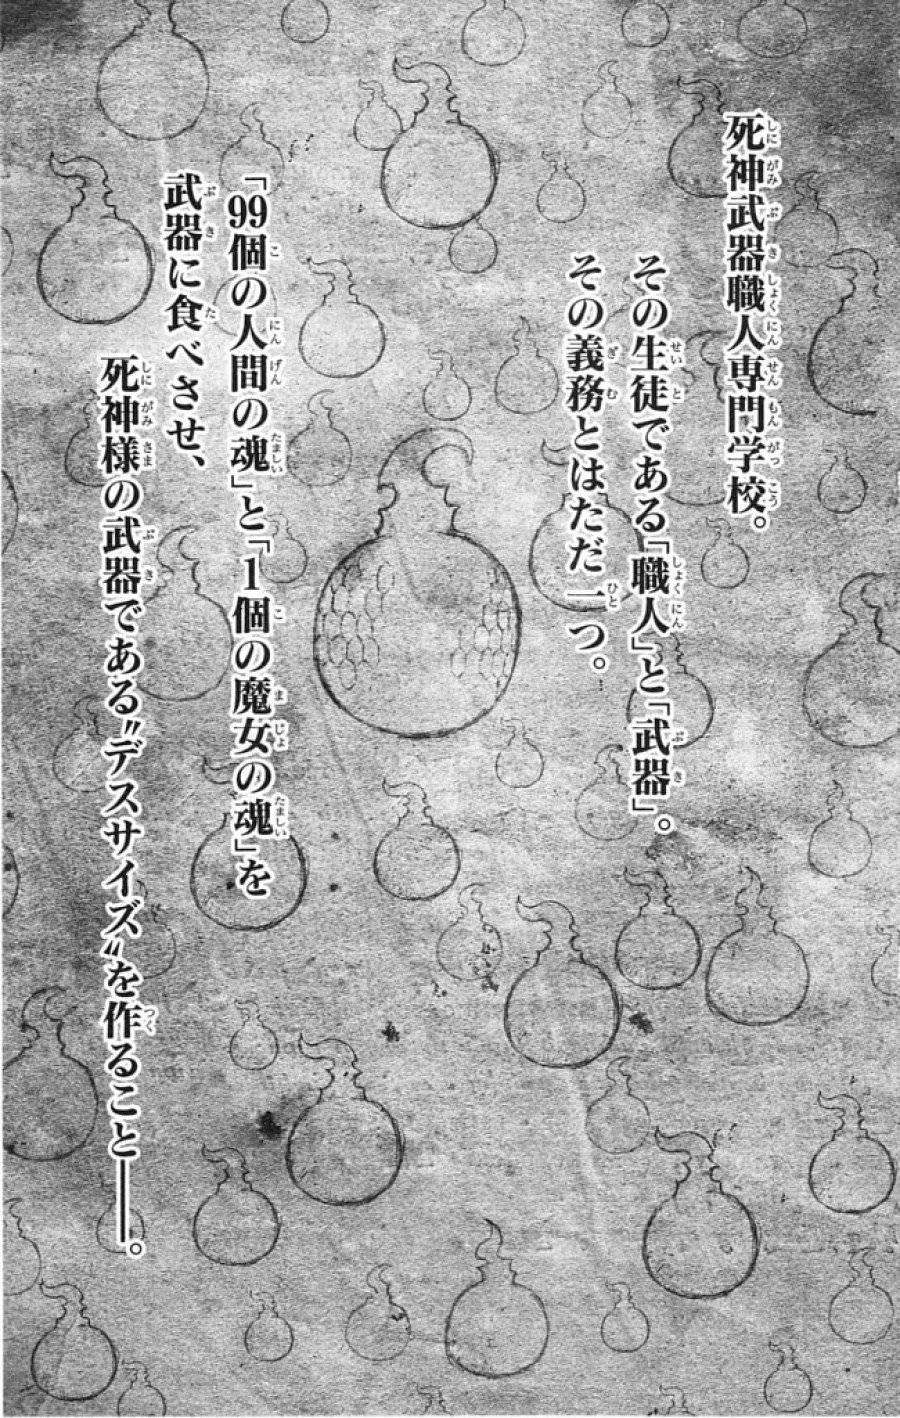 死神武器職人専門学校。
その生徒である「職人」と「武器」。
その義務とはただ一つ。
「99個の人間の魂」と「1個の魔女の魂」を
武器に食べさせ、
死神様の武器である〝デスサイズ〟を作ること――。